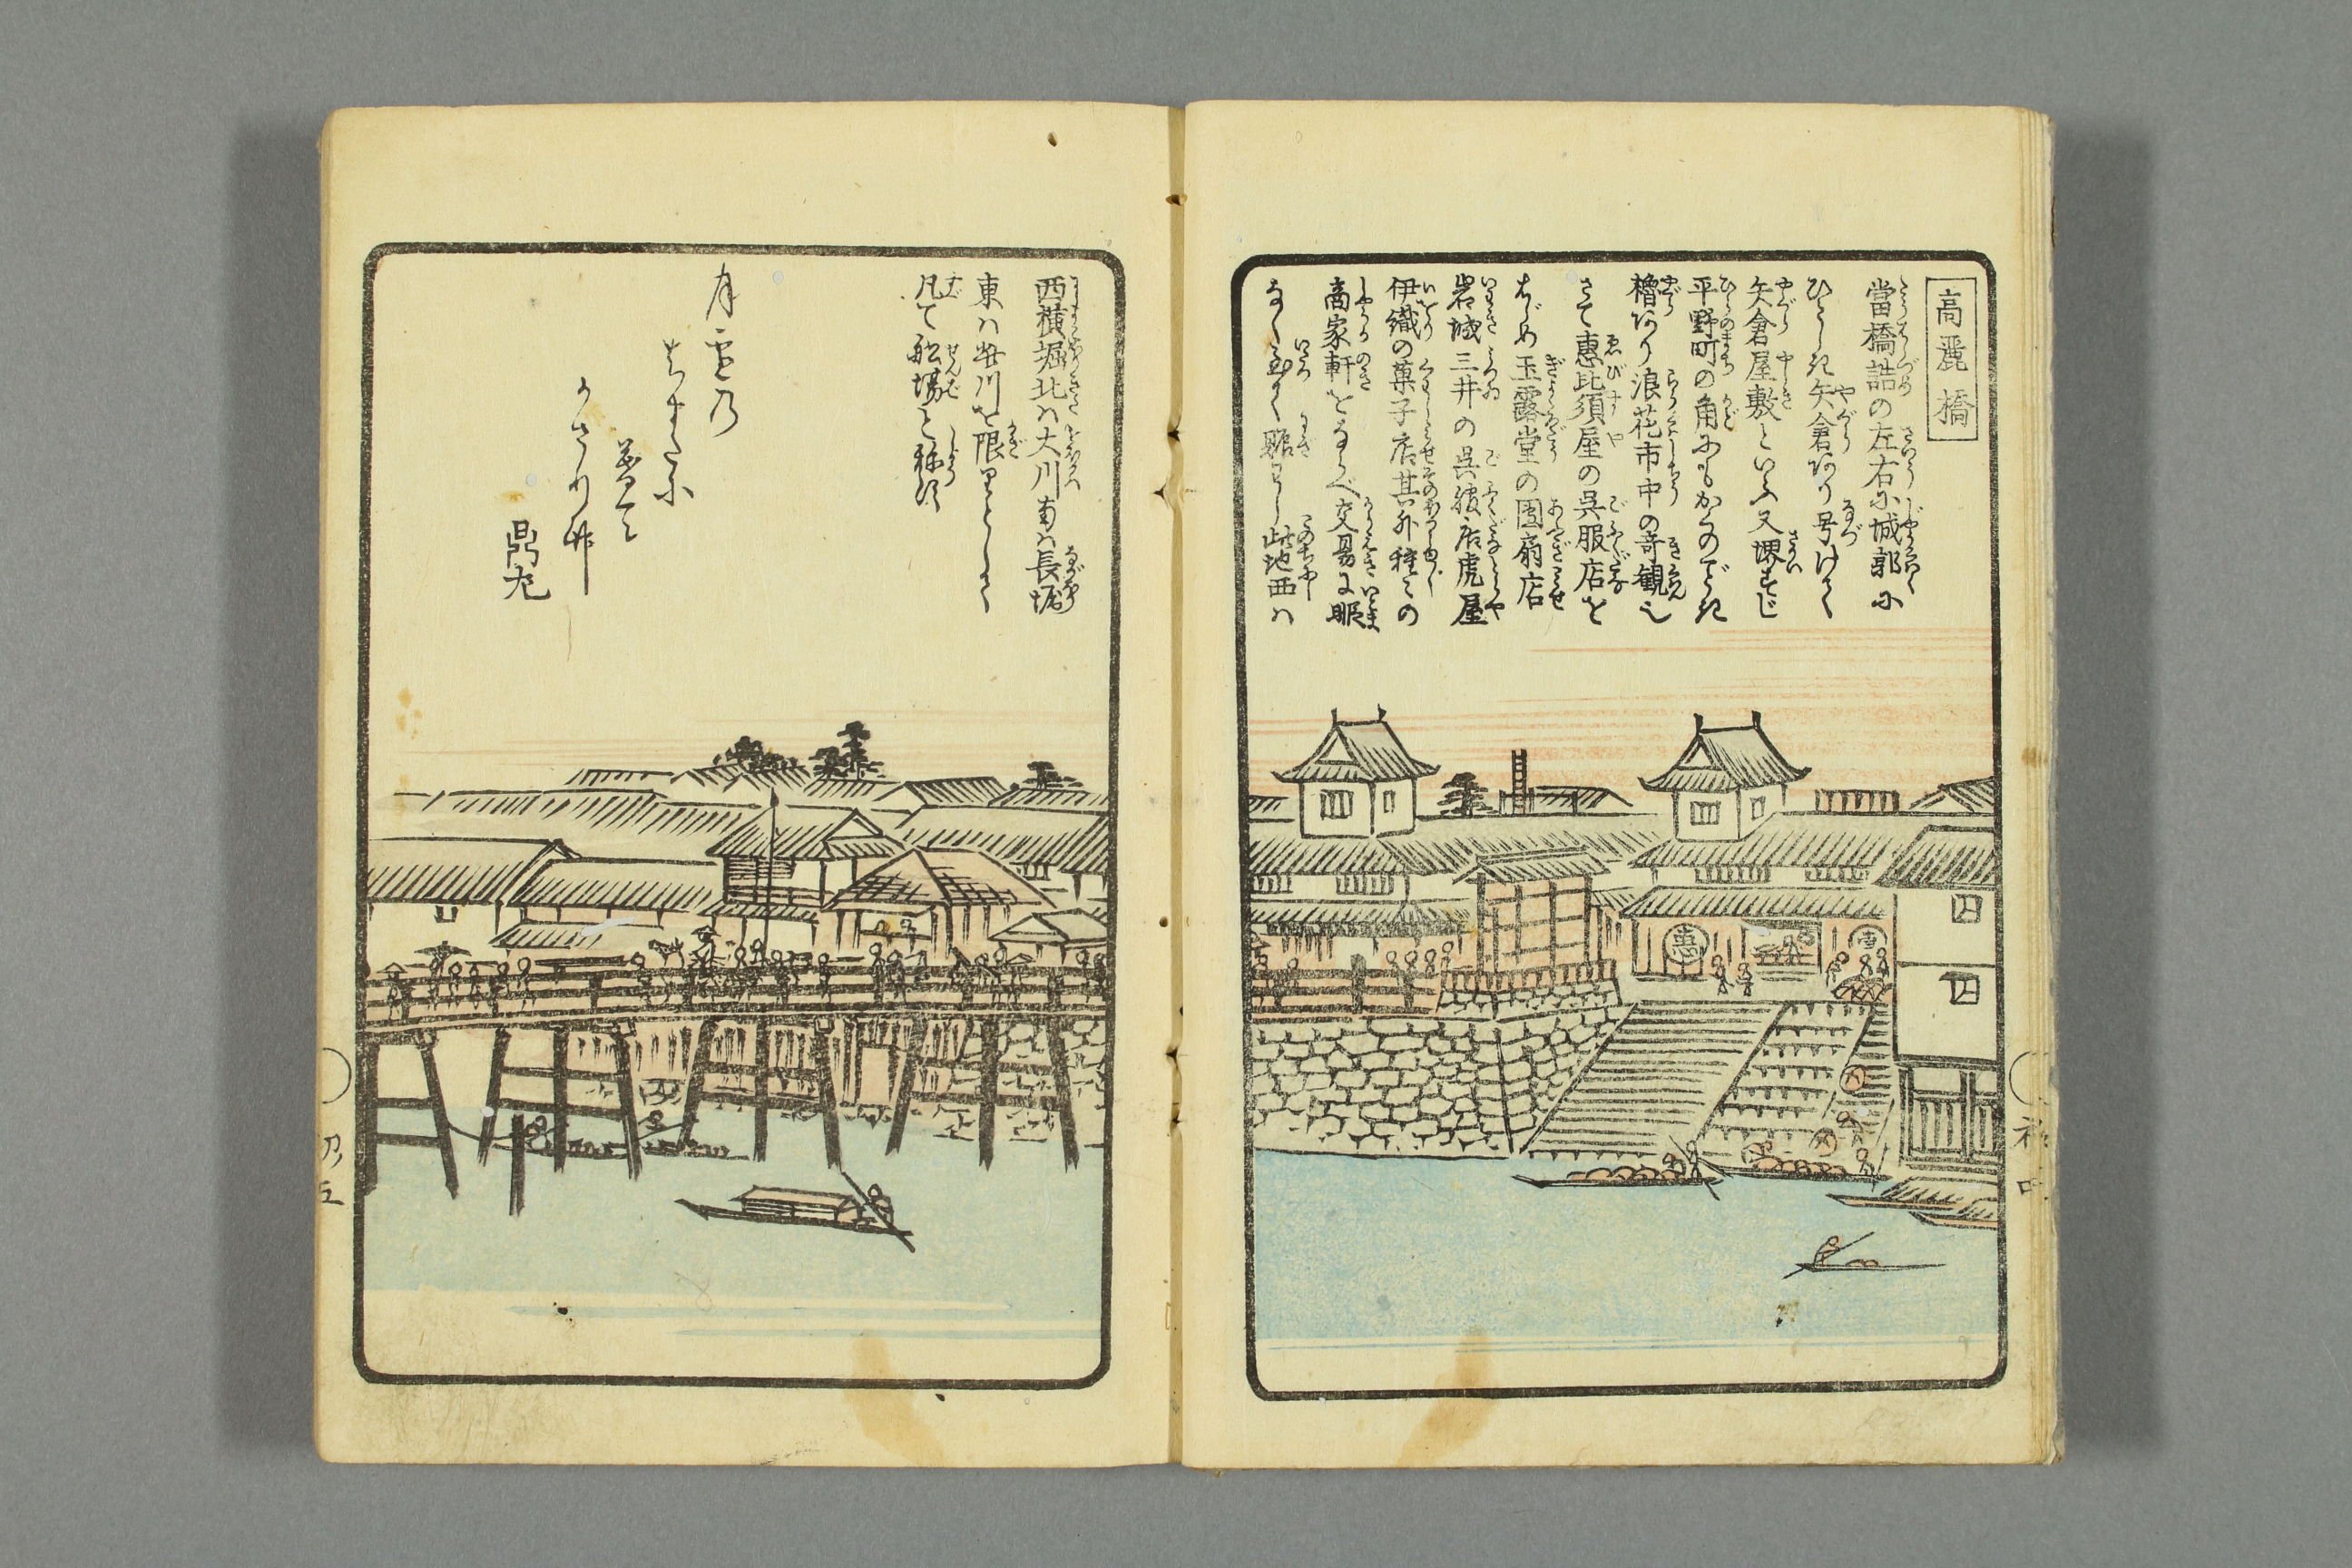 高麗橋
當橋詰の左右に城郭に
ひとしき矢倉あり号けて
矢倉屋敷といふ又堺すじ
平野町の角にもかくのごとき
櫓あり浪花市中の奇観也
さて惠比須屋の呉服店を
はじめ玉露堂の団扇店
岩城三井の呉服店虎屋
伊織の菓子店其外種々の
商家軒をならべ交易に暇
なく至て賑はし此地西ハ
西横堀北ハ大川南ハ長堀
東ハ横川を限りとして
凡て船場と称す
月雪乃
鼎左
惠